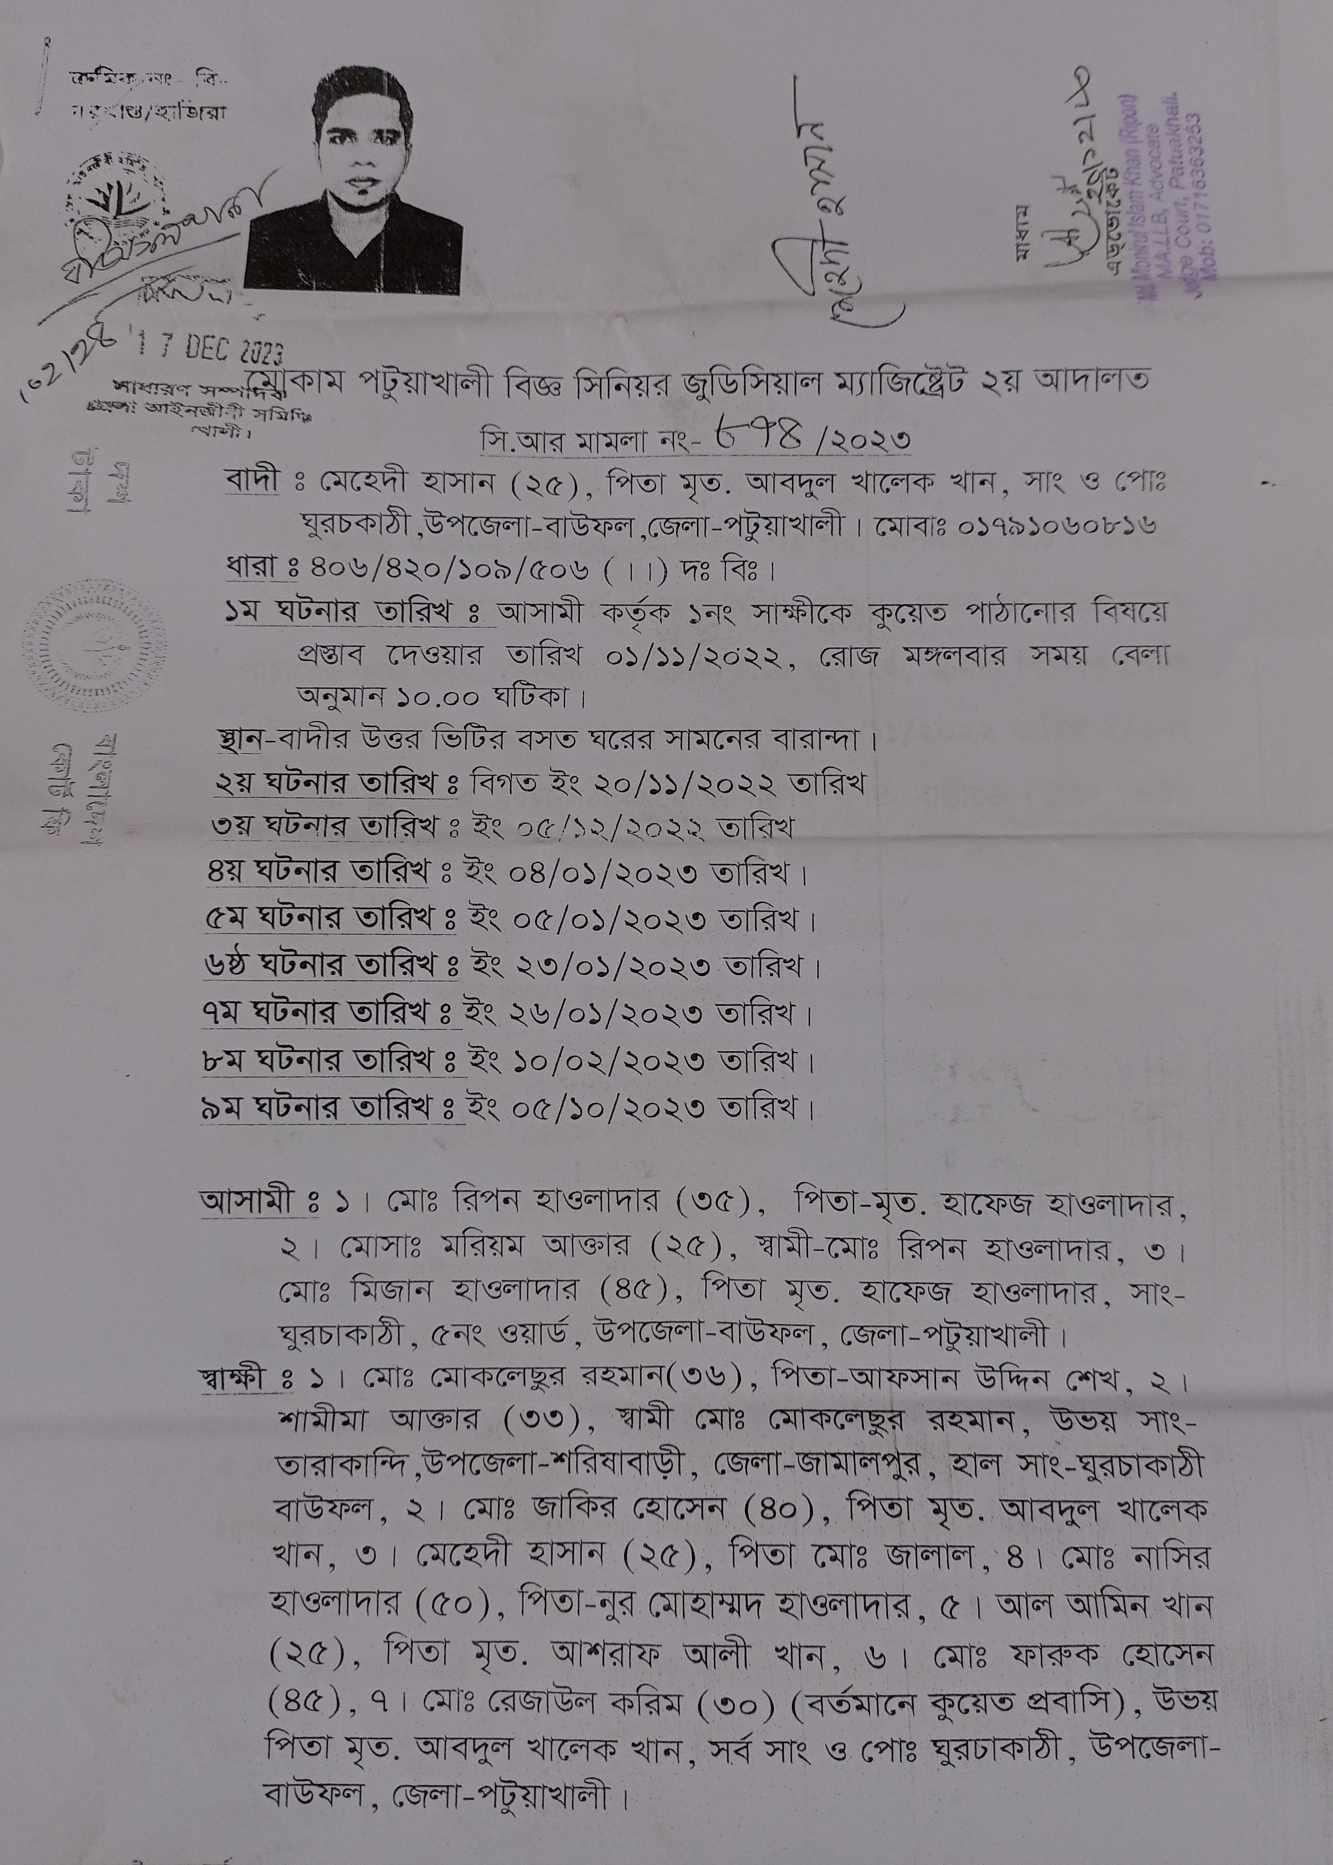 মেহেদী হাসান
মাধ্যম
এডভোকেট
Md Monirul Islam Khan (Ripon)
MA.LLB, Advocate
Judge Court, Patuakhali.
Mob: 01716363253
17 DEC 2023
সাধারণ সম্পাদক
জেলা আইনজীবী সমিতি
মোকাম পটুয়াখালী বিজ্ঞ সিনিয়র জুডিসিয়াল ম্যাজিষ্ট্রেট ২য় আদালত
সি.আর মামলা নং- ৮৭৪ /২০২৩
বাদী ঃ মেহেদী হাসান (২৫), পিতা মৃত. আবদুল খালেক খান, সাং ও পোঃ
ঘুরচকাঠী,উপজেলা-বাউফল,জেলা-পটুয়াখালী। মোবাঃ ০১৭৯১০৬০৮১৬
ধারা ঃ ৪০৬/৪২০/১০৯/৫০৬ (।।) দঃ বিঃ।
১ম ঘটনার তারিখ ঃ আসামী কর্তৃক ১নং সাক্ষীকে কুয়েত পাঠানোর বিষয়ে
প্রস্তাব দেওয়ার তারিখ ০১/১১/২০২২, রোজ মঙ্গলবার সময় বেলা
অনুমান ১০.০০ ঘটিকা।
স্থান-বাদীর উত্তর ভিটির বসত ঘরের সামনের বারান্দা।
২য় ঘটনার তারিখ ঃ বিগত ইং ২০/১১/২০২২ তারিখ
৩য় ঘটনার তারিখ ঃ ইং ০৫/১২/২০২২ তারিখ
৪য় ঘটনার তারিখ ঃ ইং ০৪/০১/২০২৩ তারিখ।
৫ম ঘটনার তারিখ ঃ ইং ০৫/০১/২০২৩ তারিখ।
৬ষ্ঠ ঘটনার তারিখ ঃ ইং ২৩/০১/২০২৩ তারিখ।
৭ম ঘটনার তারিখ ঃ ইং ২৬/০১/২০২৩ তারিখ।
৮ম ঘটনার তারিখ ঃ ইং ১০/০২/২০২৩ তারিখ।
৯ম ঘটনার তারিখ ঃ ইং ০৫/১০/২০২৩ তারিখ।
আসামী ঃ ১। মোঃ রিপন হাওলাদার (৩৫), পিতা-মৃত. হাফেজ হাওলাদার,
২। মোসাঃ মরিয়ম আক্তার (২৫), স্বামী-মোঃ রিপন হাওলাদার, ৩।
মোঃ মিজান হাওলাদার (৪৫), পিতা মৃত. হাফেজ হাওলাদার, সাং-
ঘুরচাকাঠী, ৫নং ওয়ার্ড, উপজেলা-বাউফল, জেলা-পটুয়াখালী।
স্বাক্ষী ঃ ১। মোঃ মোকলেছুর রহমান(৩৬), পিতা-আফসান উদ্দিন শেখ, ২।
শামীমা আক্তার (৩৩), স্বামী মোঃ মোকলেছুর রহমান, উভয় সাং-
তারাকান্দি,উপজেলা-শরিষাবাড়ী, জেলা-জামালপুর, হাল সাং-ঘুরচাকাঠী
বাউফল, ২। মোঃ জাকির হোসেন (৪০), পিতা মৃত. আবদুল খালেক
খান, ৩। মেহেদী হাসান (২৫), পিতা মোঃ জালাল, ৪। মোঃ নাসির
হাওলাদার (৫০), পিতা-নুর মোহাম্মদ হাওলাদার, ৫। আল আমিন খান
(২৫), পিতা মৃত. আশরাফ আলী খান, ৬। মোঃ ফারুক হোসেন
(৪৫), ৭। মোঃ রেজাউল করিম (৩০) (বর্তমানে কুয়েত প্রবাসি), উভয়
পিতা মৃত. আবদুল খালেক খান, সর্ব সাং ও পোঃ ঘুরচাকাঠী, উপজেলা-
বাউফল, জেলা-পটুয়াখালী।